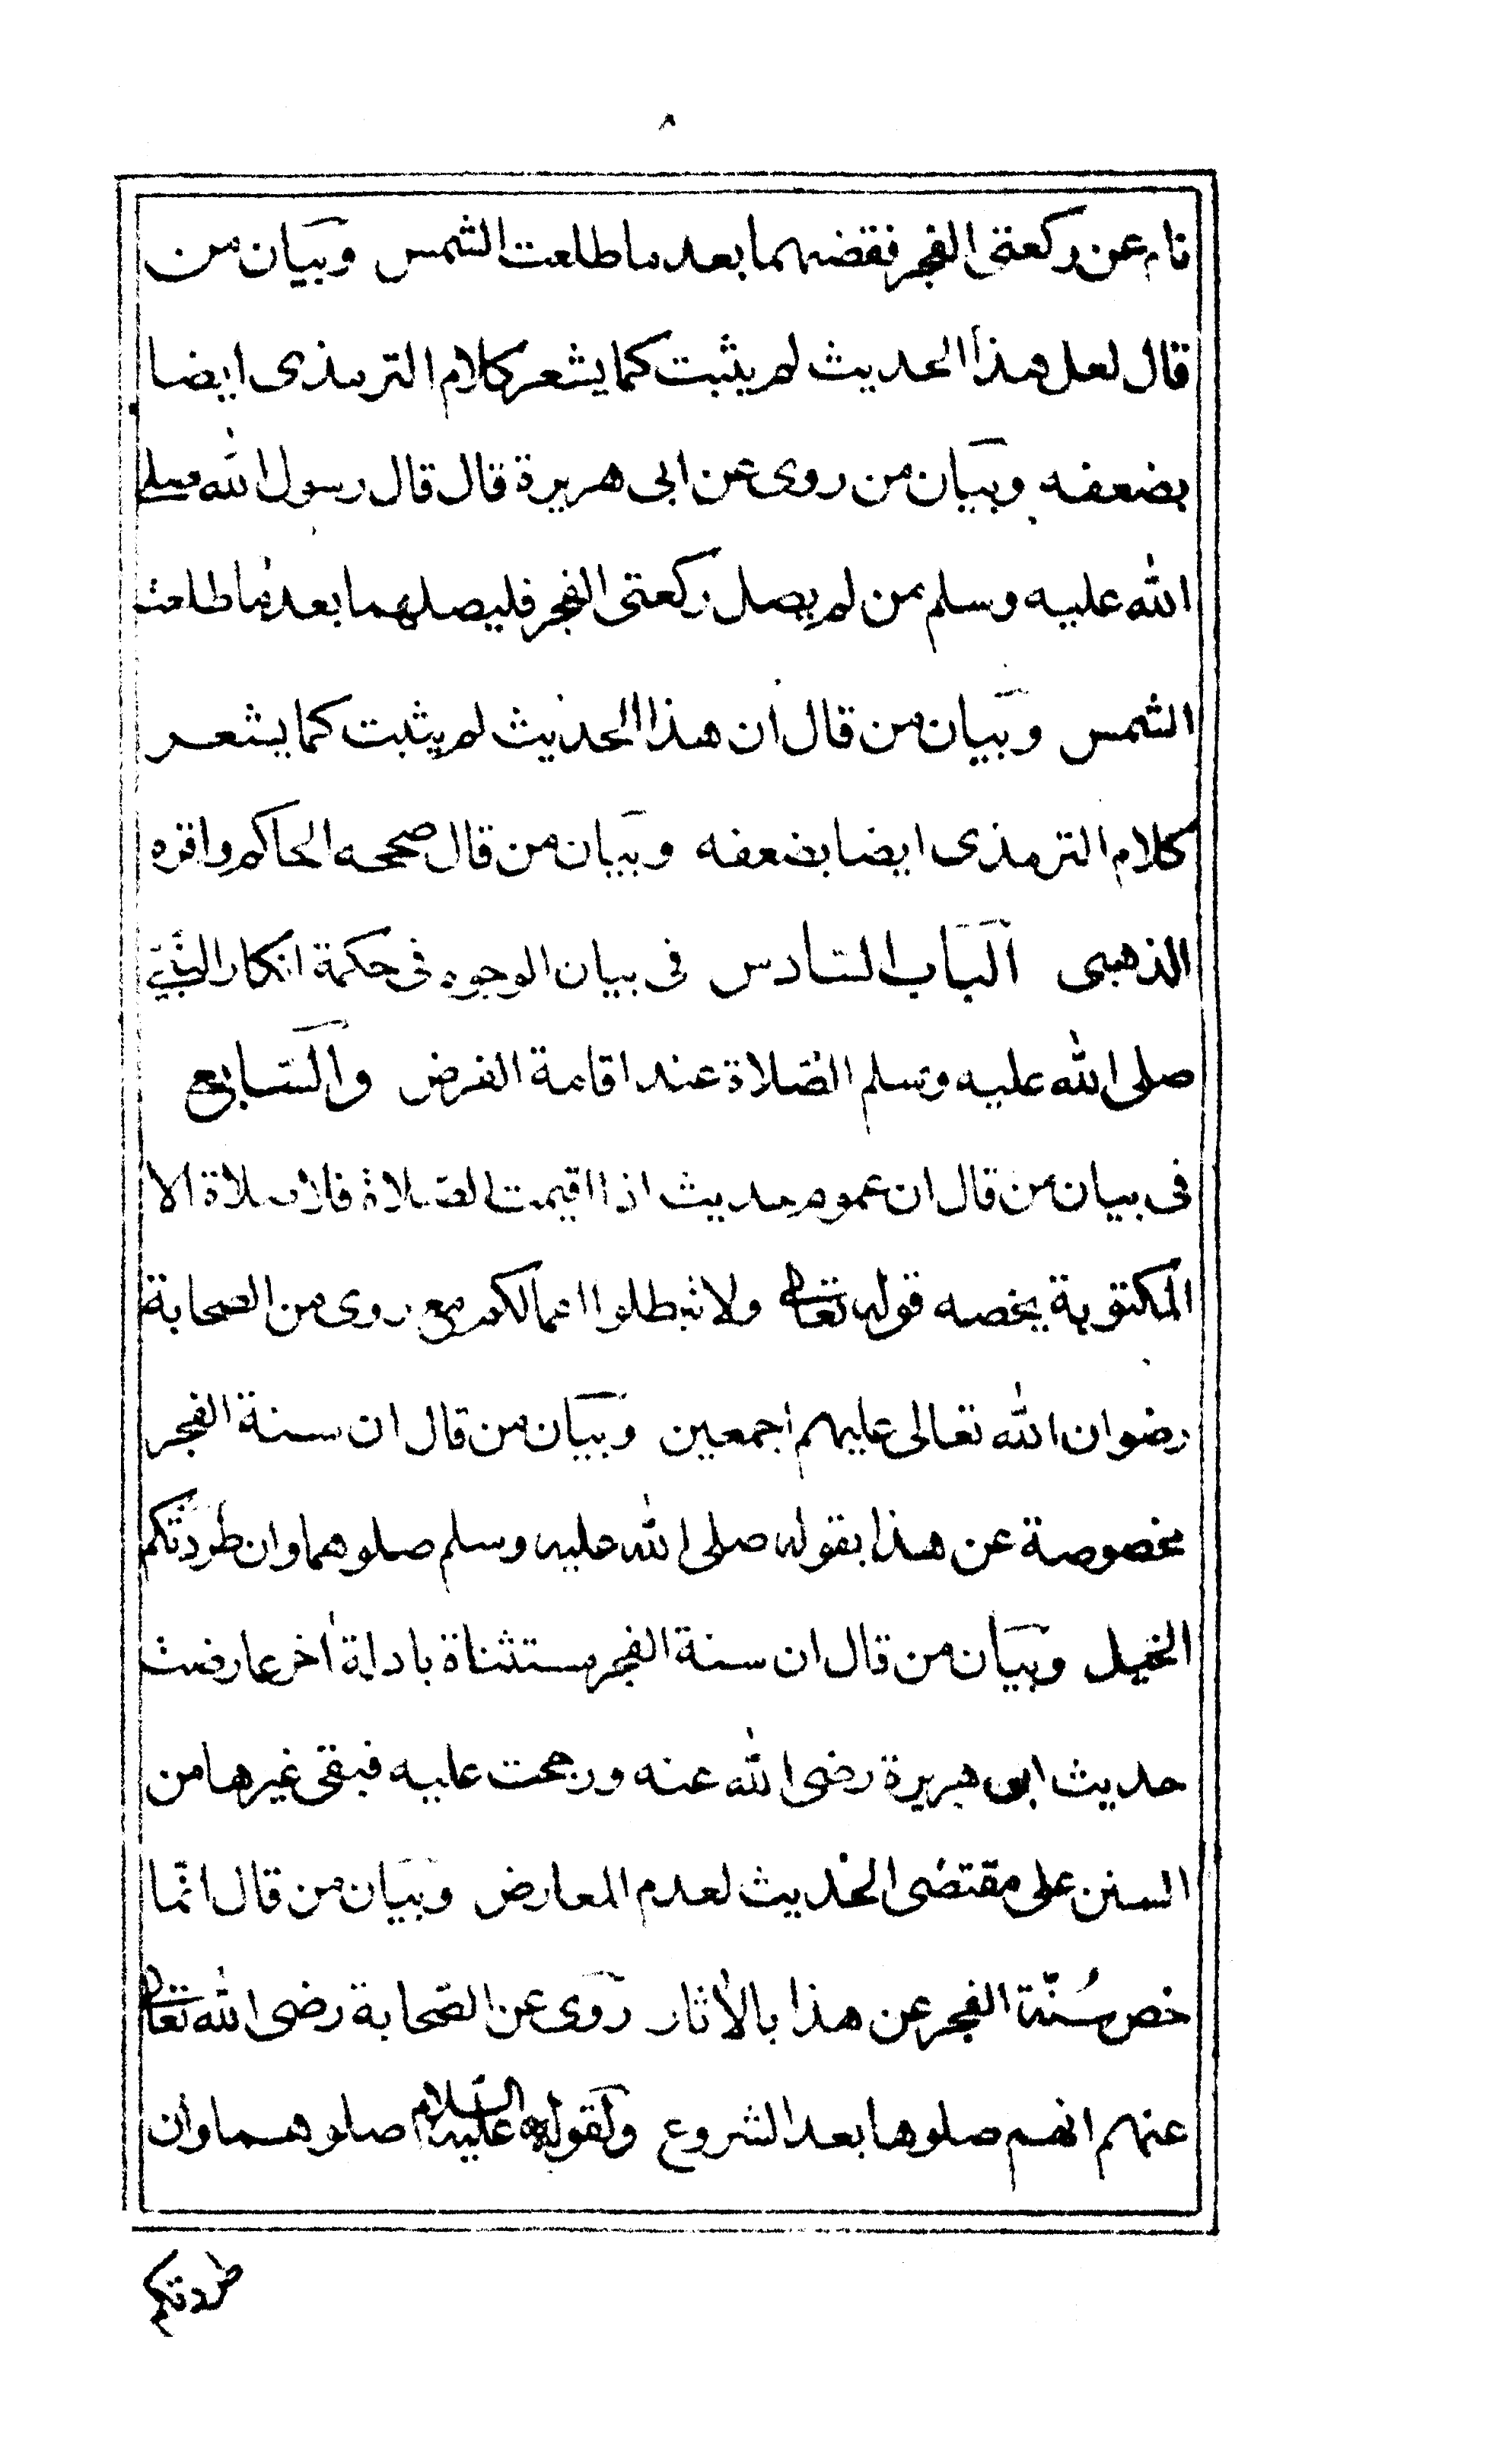 ٨
نام عن ركعتى الفجر فقضهما بعد ما طلعت الشمس وبيان من
قال لعل هذا الحديث لم يثبت كما يشعر كلام الترمذى ايضا
بضعفه وبيان من روى عن ابى هريرة قال قال رسول الله صلى
الله عليه وسلم من لم يصل ركعتى الفجر فليصلهما بعد ما طلعت
الشمس وبيان من قال ان هذا الحديث لم يثبت كما يشعر
كلام الترمذى ايضا بضعفه وبيان من قال صححه الحاكم واقره
الذهبى الباب السّادس فى بيان الوجوه فى حكمة انكار النّبىّ
صلى الله عليه وسلم الصّلاة عند اقامة الفرض والسّابع
فى بيان من قال ان عموم حديث اذا اقيمت الصّلاة فلا صلاة الا
المكتوبة يخصه قوله تعالى ولا تبطلوا اعمالكم مع روى من الصحابة
رضوان الله تعالى عليهم اجمعين وبيان من قال ان سنة الفجر
مخصوصة عن هذا بقوله صلى الله عليه وسلم صلوهما وان طردتكم
الخيل وبيان من قال ان سنة الفجر مستثناة بادلة اخر عارضت
حديث ابى هريرة رضى الله عنه ورجحت عليه فبقى غيرها من
السنن على مقتضى الحديث لعدم المعارض وبيان من قال انّما
خص سُنّة الفجر عن هذا بالأثار روى عن الصّحابة رضى الله تعالى
عنهم انهم صلوها بعد الشروع ولقوله عليه السّلام صلوهما وان
طردتكم